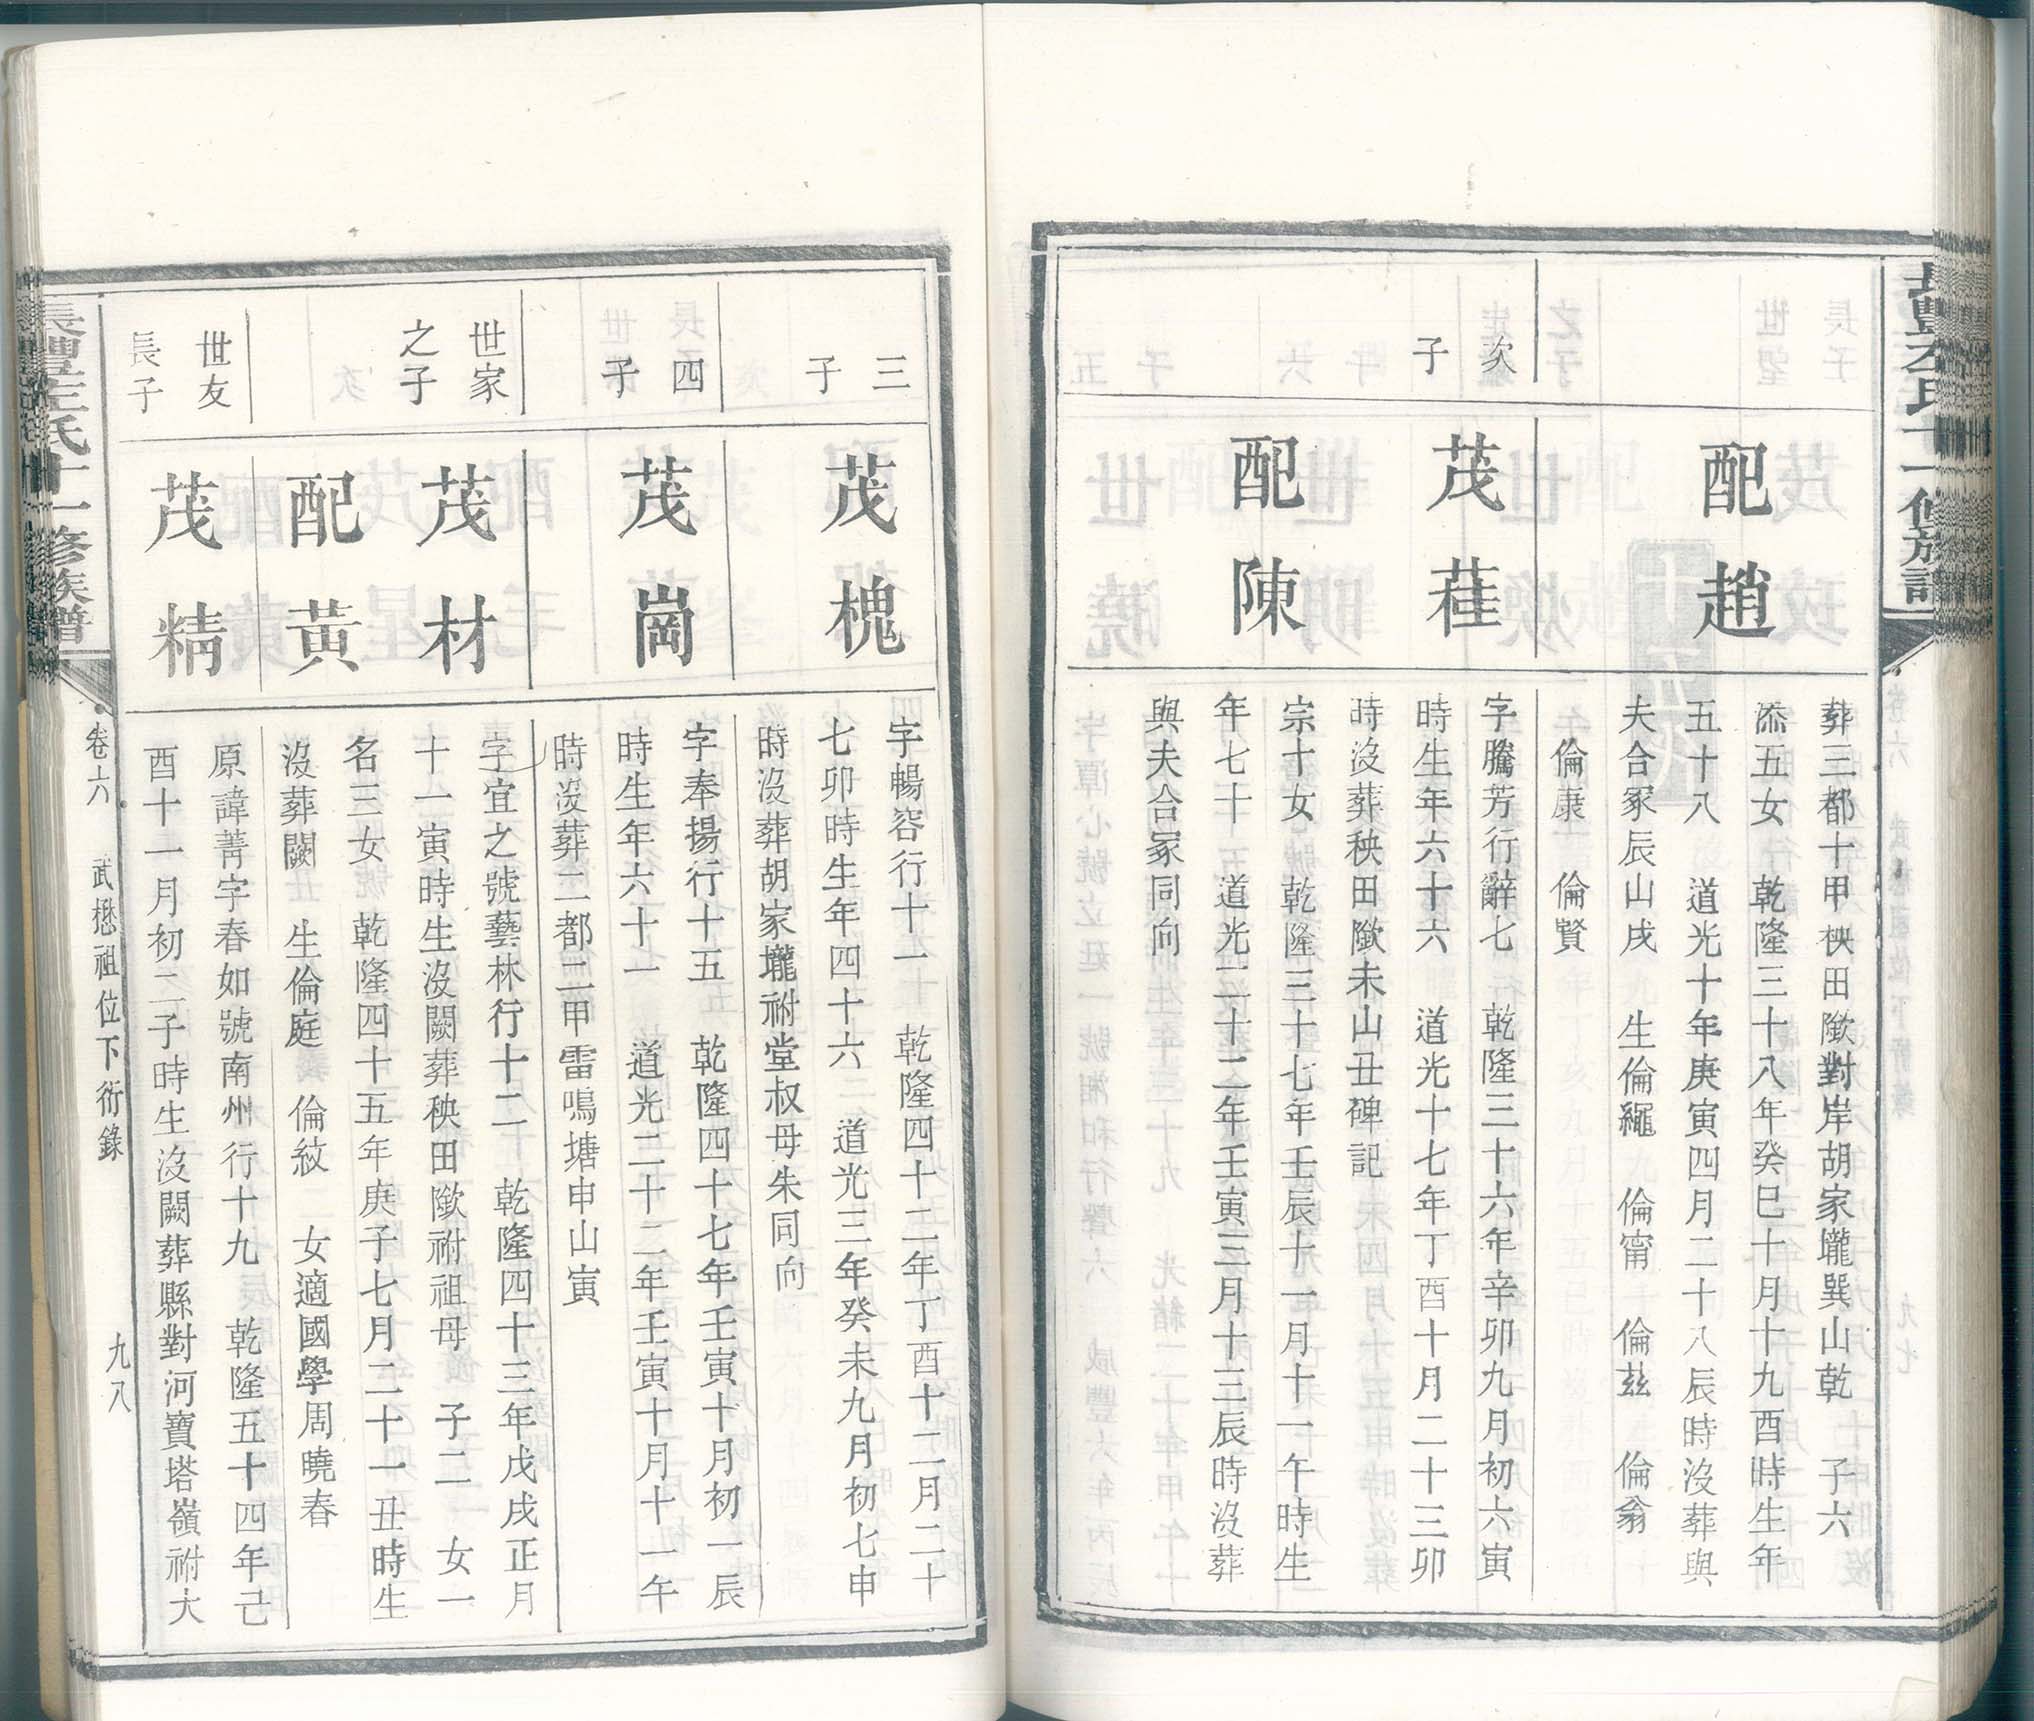 配趙
葬三都十甲秧田㙟對岸胡家壠巽山乾 子六
添五女 乾隆三十八年癸巳十月十九酉時生年
五十八 道光十年庚寅四月二十八辰時沒葬與
夫合冢辰山戌 生倫繩 倫甯 倫玆 倫翁
倫康 倫賢
次子
茂蓕
字騰芳行辭七 乾隆三十六年辛卯九月初六寅
時生年六十六 道光十七年丁酉十月二十三卯
時沒葬秧田㙟未山丑碑記
配陳
宗十女 乾隆三十七年壬辰十一月十一午時生
年七十 道光二十二年壬寅三月十三辰時沒葬
與夫合冢同向
三子
茂槐
字暢容行十一 乾隆四十二年丁酉十二月二十
七卯時生年四十六 道光三年癸未九月初七申
時沒葬胡家壠祔堂叔母朱同向
四子
茂崗
字奉揚行十五 乾隆四十七年壬寅十月初一辰
時生年六十一 道光二十二年壬寅十月十一午
時沒葬二都二甲雷鳴塘申山寅
世家之子
茂材
字宜之號藝林行十二 乾隆四十三年戊戌正月
十一寅時生沒闕葬秧田㙟祔祖母 子二 女一
配黃
名三女 乾隆四十五年庚子七月二十一丑時生
沒葬闕 生倫庭 倫紋 女適國學周曉春
世友長子
茂精
原諱菁字春如號南州行十九 乾隆五十四年己
酉十一月初二子時生沒闕葬縣對河寶塔嶺祔大
長豐左氏十一修族譜
卷六 武懋祖位下衍錄 九八